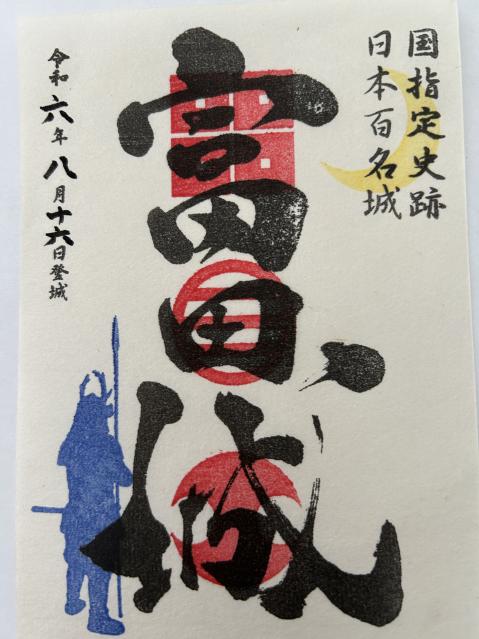 国指定史跡
日本百名城
富田城
令和六年八月十六日登城